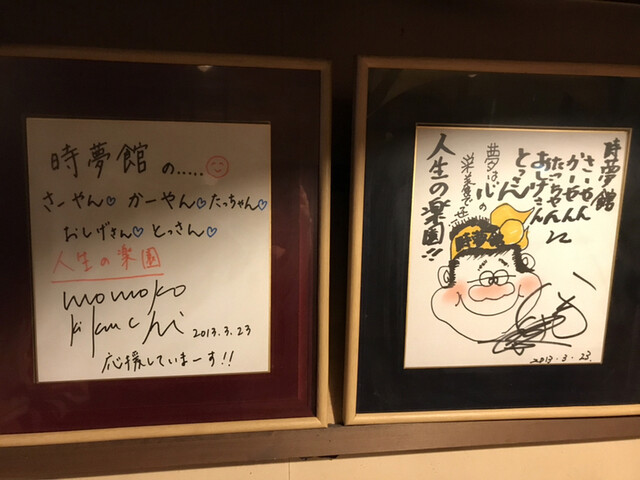 時夢館の.....
さーやん かーやん たっちゃん
おしげさん とっさん
人生の楽園
momoko
kikuchi 2013.3.23
応援していまーす!!
時夢館
さーやん
かーやん
たっちゃん
おしげさん
とっさん
夢は
栄養
人生の楽園!!
時夢館
2013.3.23.